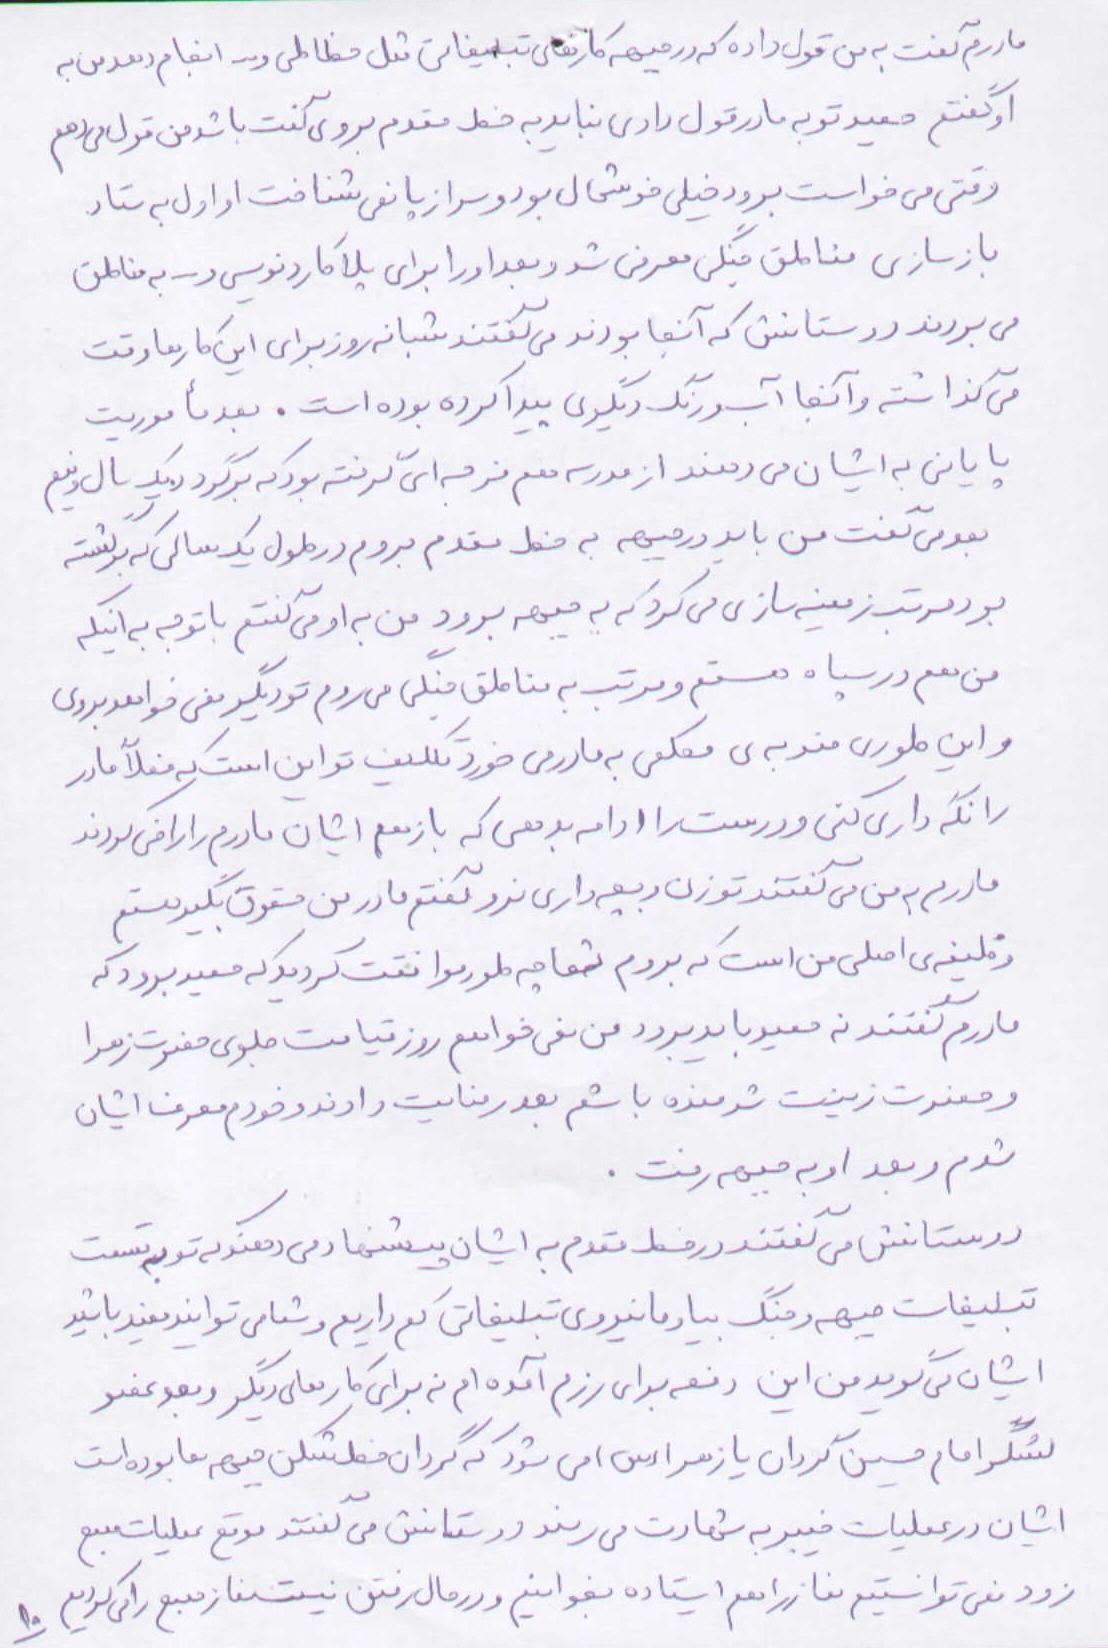 مادرم گفت به من قول داده که در جبهه کارهای تبلیغاتی مثل خطاطی و... انجام دهد من به
او گفتم حمید تو به مادر قول دادی نباید به خط مقدم بروی گفت باشد من قول می دهم
وقتی می خواست برود خیلی خوشحال بود و سر از پا نمی شناخت او اول به ستاد
بازسازی مناطق جنگی معرفی شد و بعد او را برای پلاکارد نویسی و... به مناطق
می بردند دوستانش که آنجا بودند می گفتند شبانه روز برای این کارها وقت
می گذاشته و آنجا آب و رنگ دیگری پیدا کرده بوده است . بعد مأموریت
پایانی به ایشان می دهند از مدرسه هم مرخصه ای گرفته بود که برگردد یک سال و نیم
بعد می گفت من باید در جبهه به خط مقدم بروم در طول یک سالی که برگشته
بود مرتب زمینه سازی می کرد که به جبهه برود من به او می گفتم با توجه به اینکه
من هم در سپاه هستم و مرتب به مناطق جنگی می روم تو دیگر نمی خواهد بروی
و این طوری ضربه ی محکمی به مادر می خورد تکلیف تو این است که فعلاً مادر
را نگه داری کنی و درست را ادامه بدهی که باز هم ایشان مادرم را راضی کردند
مادرم به من می گفتند تو زن و بچه داری نرو گفتم مادر من حقوق بگیر هستم
وظیفه ی اصلی من است که بروم شما چه طور موافقت کردید که حمید برود که
مادرم گفتند نه حمید باید برود من نمی خواهم روز قیامت جلوی حضرت زهرا
و حضرت زینب شرمنده باشم بعد رضایت دادند و خودم معرف ایشان
شدم و بعد او به جبهه رفت .
دوستانش می گفتند در خط مقدم به ایشان پیشنهاد می دهند که تو به قسمت
تبلیغات جبهه و جنگ بیا و ما نیروی تبلیغاتی کم داریم و شما می توانید مفید باشید
ایشان می گوید من این دفعه برای رزم آمده ام نه برای کارهای دیگر و بعد عضو
لشگر امام حسین گردان یا زهرا (س) می شود که گردان خط شکن جبهه ها بوده است
ایشان در عملیات خیبر به شهادت می رسند دوستانش می گفتند موقع عملیات صبح
زود نمی توانستیم نماز را هم ایستاده بخوانیم و در حال رفتن نیت نماز صبح را می کردیم
۱۰